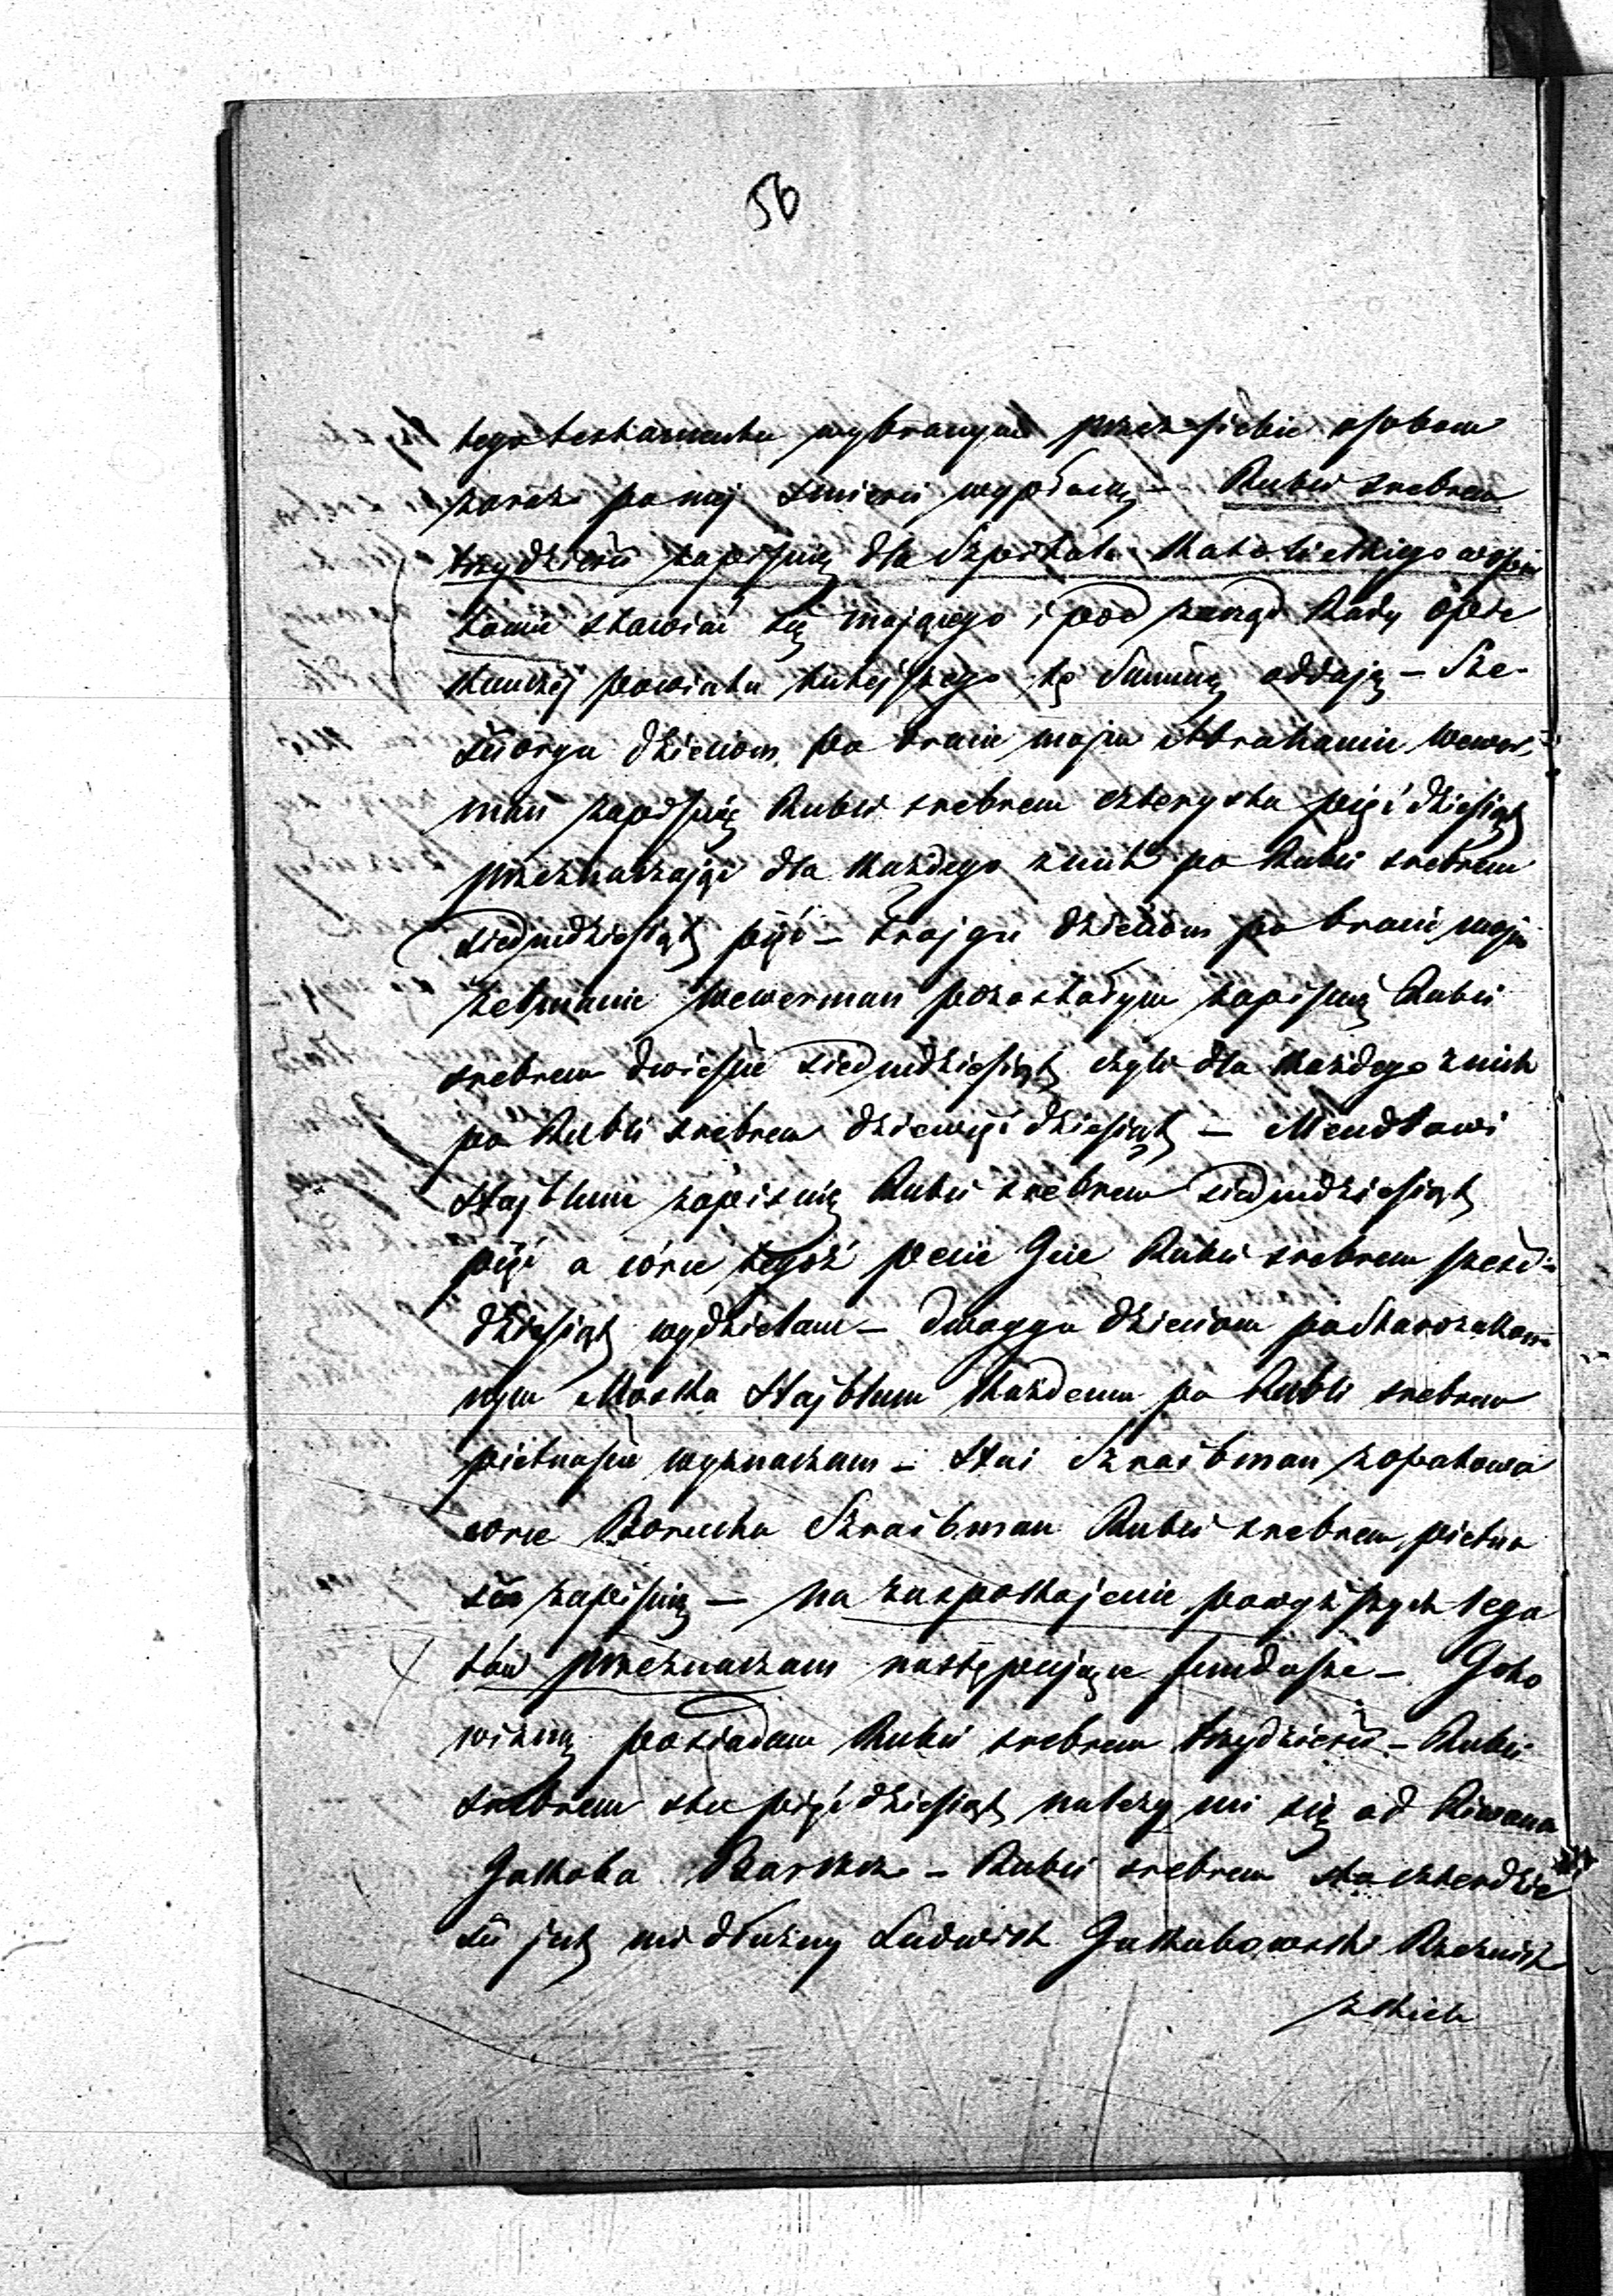 56
tego testamentu wybranym przez siebie osobom
zaraz po mej śmierci wypłacą – Rubli srebrem
trzydzieści zapisuię dla Szpitala Katolickiego w
stawiać się mającego i pod zarząd Rady Opie
kunczéj powiatu tutéjszego tę Summę oddaję – Sze-
ściorgu dzieciom po bracie moim Abrahamie Wewer-
man zapisuię Rubli srebrem czterysta pięćdziesiąt
przeznaczając dla każdego z nich po Rubli srebrem
siedmdziesiąt pięć – trojgu dzieciom po bracie moim
Zelmanie Wewerman pozostałym zapisuię Rubli
srebrem dwieście siedmdziesiąt czyli dla każdego z nich
po Rubli srebrem dziewięćdziesiąt – Mendlowi
Stajblum zapisuię Rubli srebrem siedmdziesiąt
pięć a córce tegoż Rubli srebrem sześć-
dziesiąt wydzielam – dwoygu dzieciom po Starozakon-
nym Moszka Stajblum każdemu po Rubli srebrem
pietnaście wyznaczam – Szrajbman
córce Borucha Szrajbman Rubli srebrem pietna
ście zapisuię – na zaspokojenie powyższych lega
tów przeznaczam następujące fundusze – Goto
wizną posiadam Rubli srebrem trzydzieści – Rubli
srebrem sto pięćdziesiąt należy mi się od
Jakoba – Rubli srebrem sto czterdzie
ści jest mi dłużny Ludwik Jakubowski Rzeźnik
z Kielc